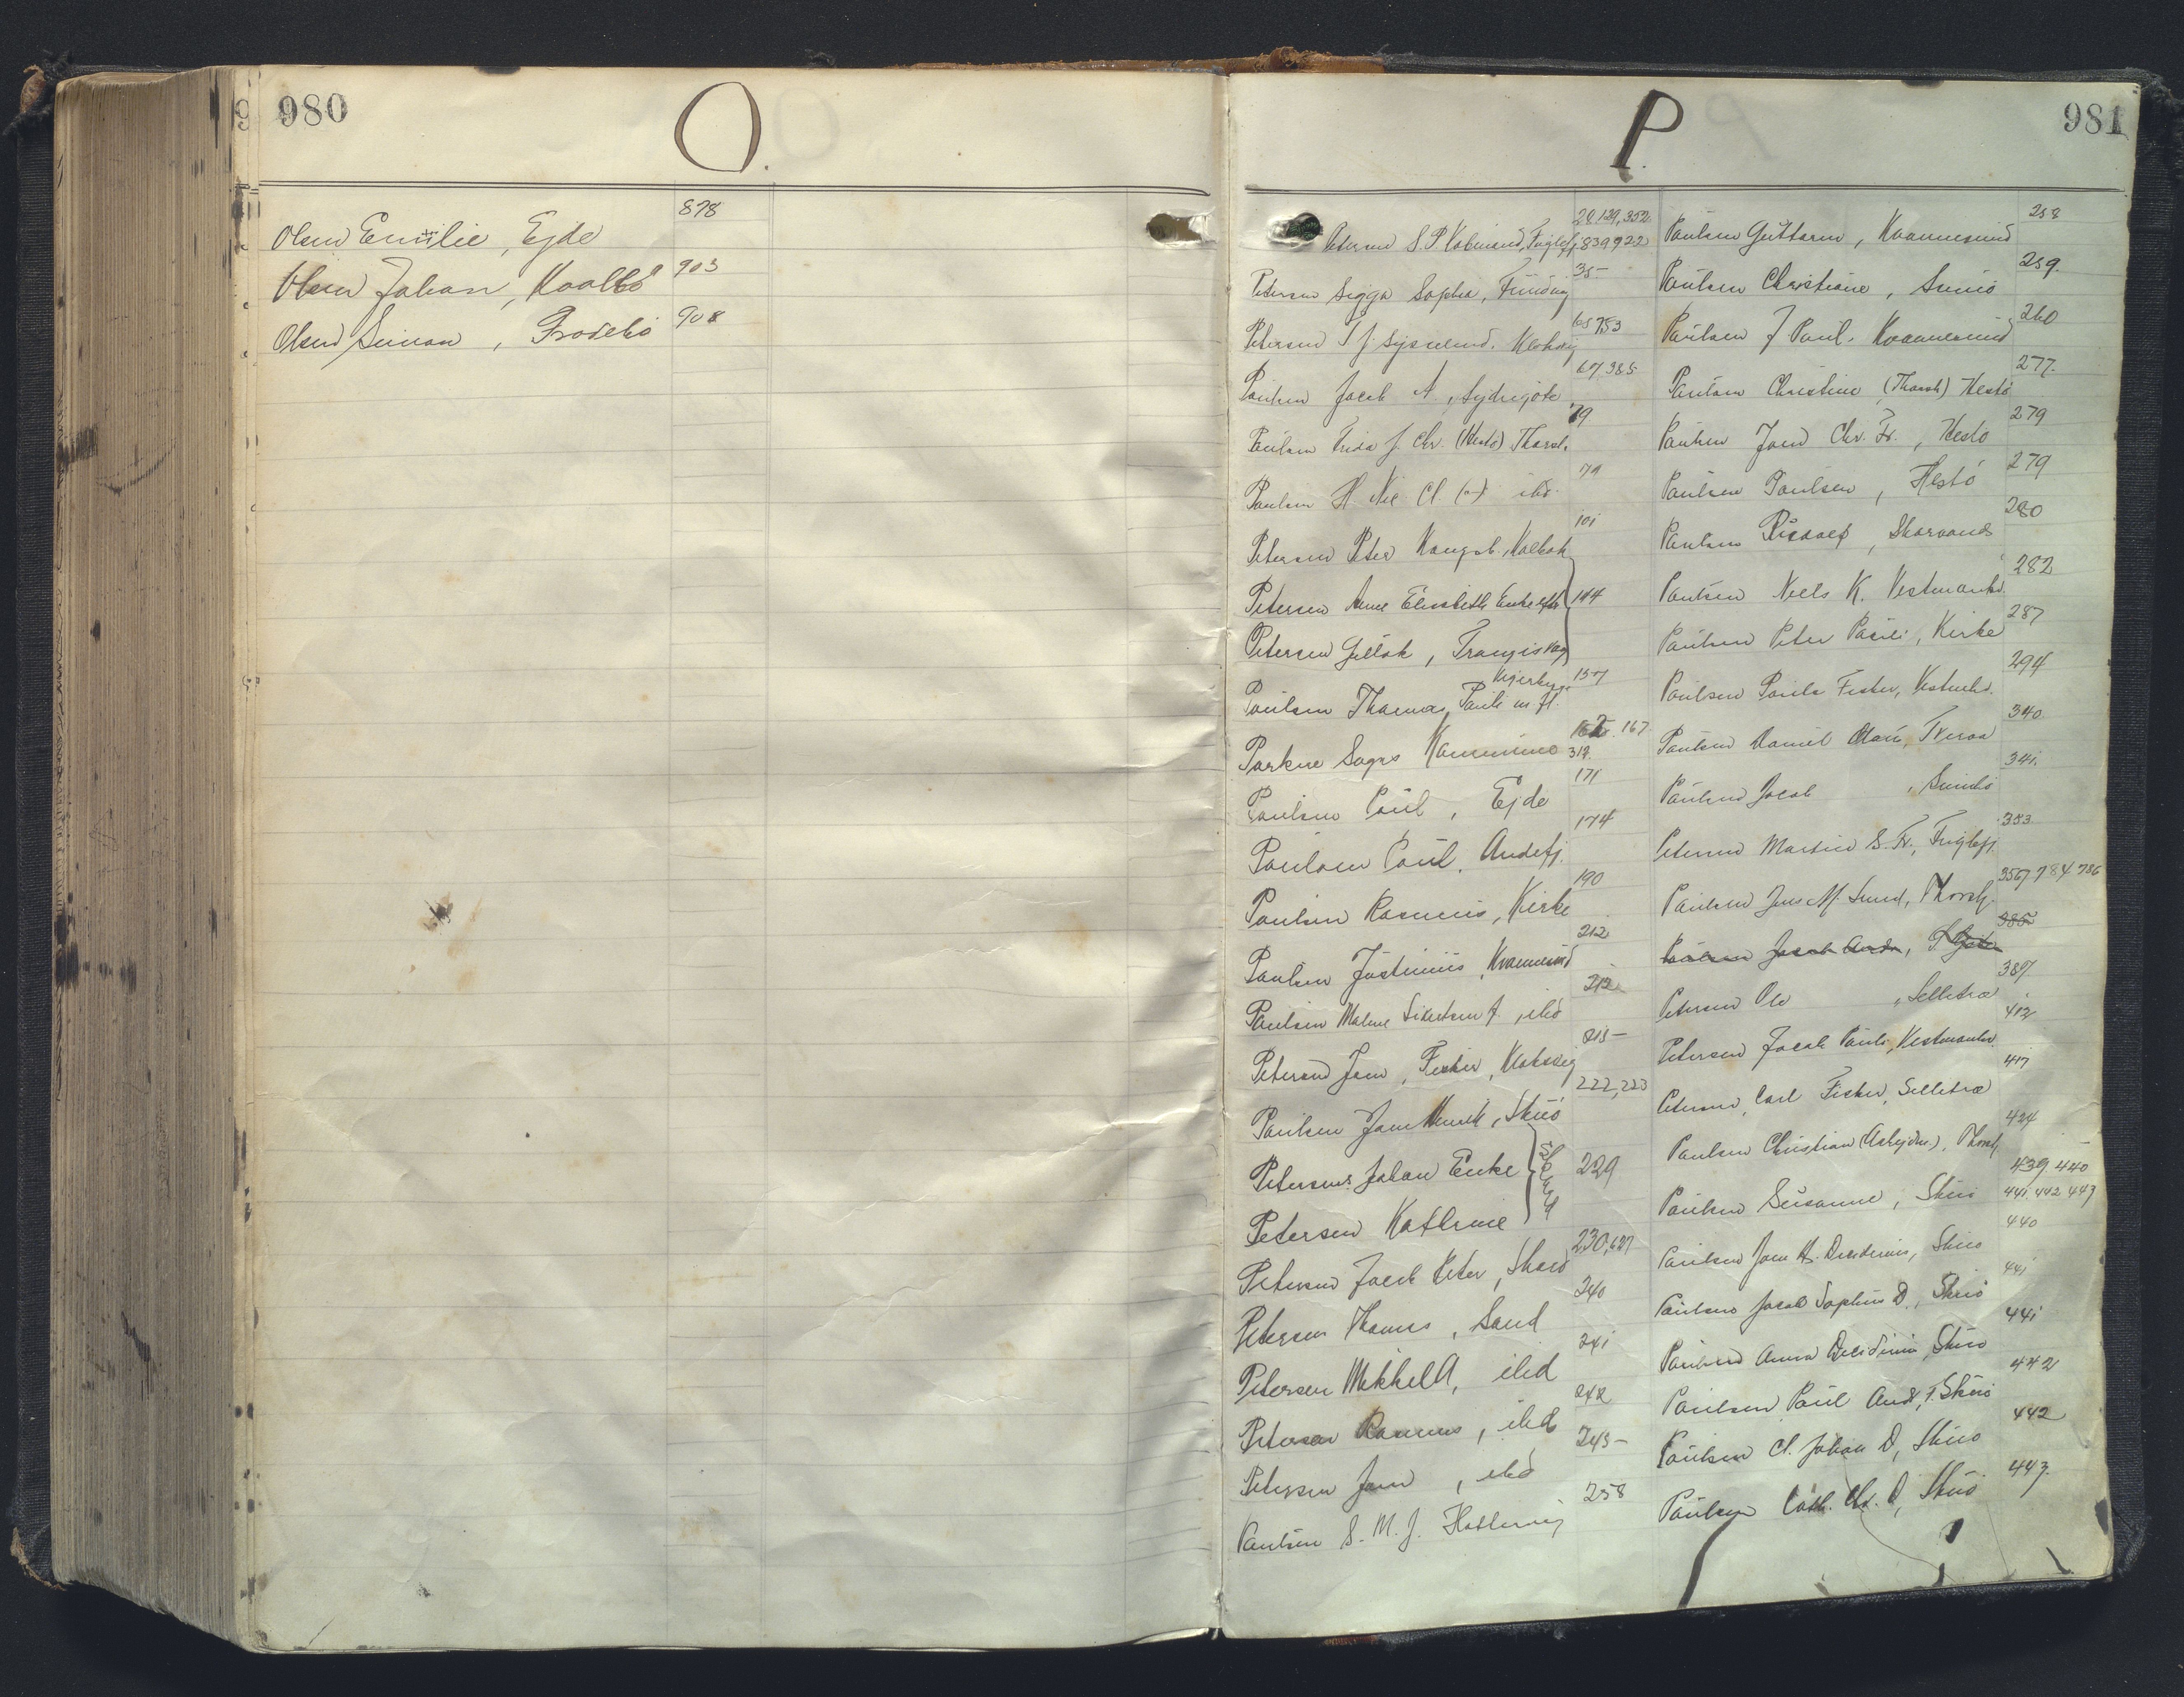 980
O.
Olsen Emilie, Ejde 878
Olsen Johan, Kvalbö 903
Olsen Simon, Frodebö 908
P.
981
Petersen S. P. Kobmand, Fuglefj. 20, 129, 352 839 922
Petersen Sigga Sophia, Funding 35
Petersen T J. Sysselmd. Klaksvig 65 753
Paulsen Jacob A., Sydregöte 67 385
Paulsen Frida J. Chr. (Hestö) Thorsh. 79
Paulsen H. Nic Cl. (") ibd. 79
Petersen Peter Kongsb. Kolbak 101
Petersen Anne Elisabeth Enke efter 144
Petersen Gullak, Trangisvaag
Paulsen Thomas Pauli m. fl. Kirkeby 157
Parkne Sogns Kommune 162. 167 312
Paulsen Poul, Ejde 171
Paulsen Poul, Andefj. 174
Paulsen Rasmus, Kirke 190
Paulsen Justinus, Kvannesund 212
Paulsen Malene Sivertsen f., ibd 212
Petersen Joen, Fisker, Klaksvig 215
Paulsen Joen Henrik, Skuö 222, 223
Petersens Johan Enke 229
Petersen Kathrine
Petersen Jacob Peter, Skard 230, 627
Petersen Thomas, Sand 240
Petersen Mikkel A, ibid 241
Petersen Rasmus, ibid 242
Petersen Joen, ibd 245
Paulsen S. M. J. Hattervig 258
Paulsen Guttorm, Kvannesund 258
Paulsen Christiane, Svinö 259.
Paulsen J Paul. Kvannesund 260
Paulsen Christine (Thorsh) Hestö 277.
Paulsen Joen Chr. Fr., Hestö 279
Paulsen Poulsen, Hestö 279
Paulsen, Skarvanes 280
Paulsen Niels K. Vestmanhv. 282
Paulsen Peter Pauli, Kirke 287
Paulsen Paula Fisker, Vestmhv. 294
Paulsen Daniel, Kveraa 340.
Paulsen Jacob, Sumbö 341.
Petersen Martin S. Fr., Fuglefj. 353.
Paulsen Jens M. Smed, Thorsh. 356, 784 786
Paulsen Jacob Andr., S. Göte 385
Petersen Ole, Selletræ 387
Petersen Jacob Pauli, Vestmanhv. 412
Petersen, Carl Fisker, Selletræ 417
Paulsen Christian (Arbejdsm.), Thorsh. 424
Paulsen Susanne, Skuö 439. 440 441. 442 443
Paulsen Joen H. Desiderius, Skuö 440
Paulsen Jacob Sophus D., Skuö 441
Paulsen Anna Desideria, Skuö 441
Paulsen Poul And. F. Skuö 442
Paulsen Cl. Johan D, Skuö 442
Paulsen Cath. Chr. D, Skuö 443.